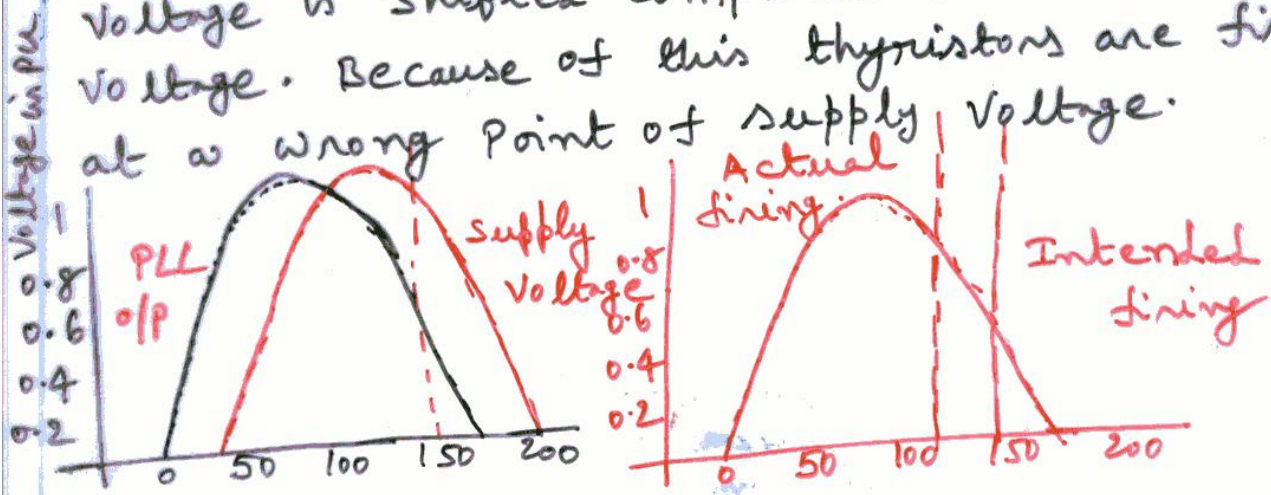 Voltage is shifted comp
voltage. Because of this thyristors are fi
at a wrong Point of supply Voltage.
Voltage in pu
1
0.8
0.6
0.4
0.2
PLL
o/p
Supply
Voltage
0 50 100 150 200
1
0.8
0.6
0.4
0.2
Actual
firing.
Intended
firing
0 50 100 150 200